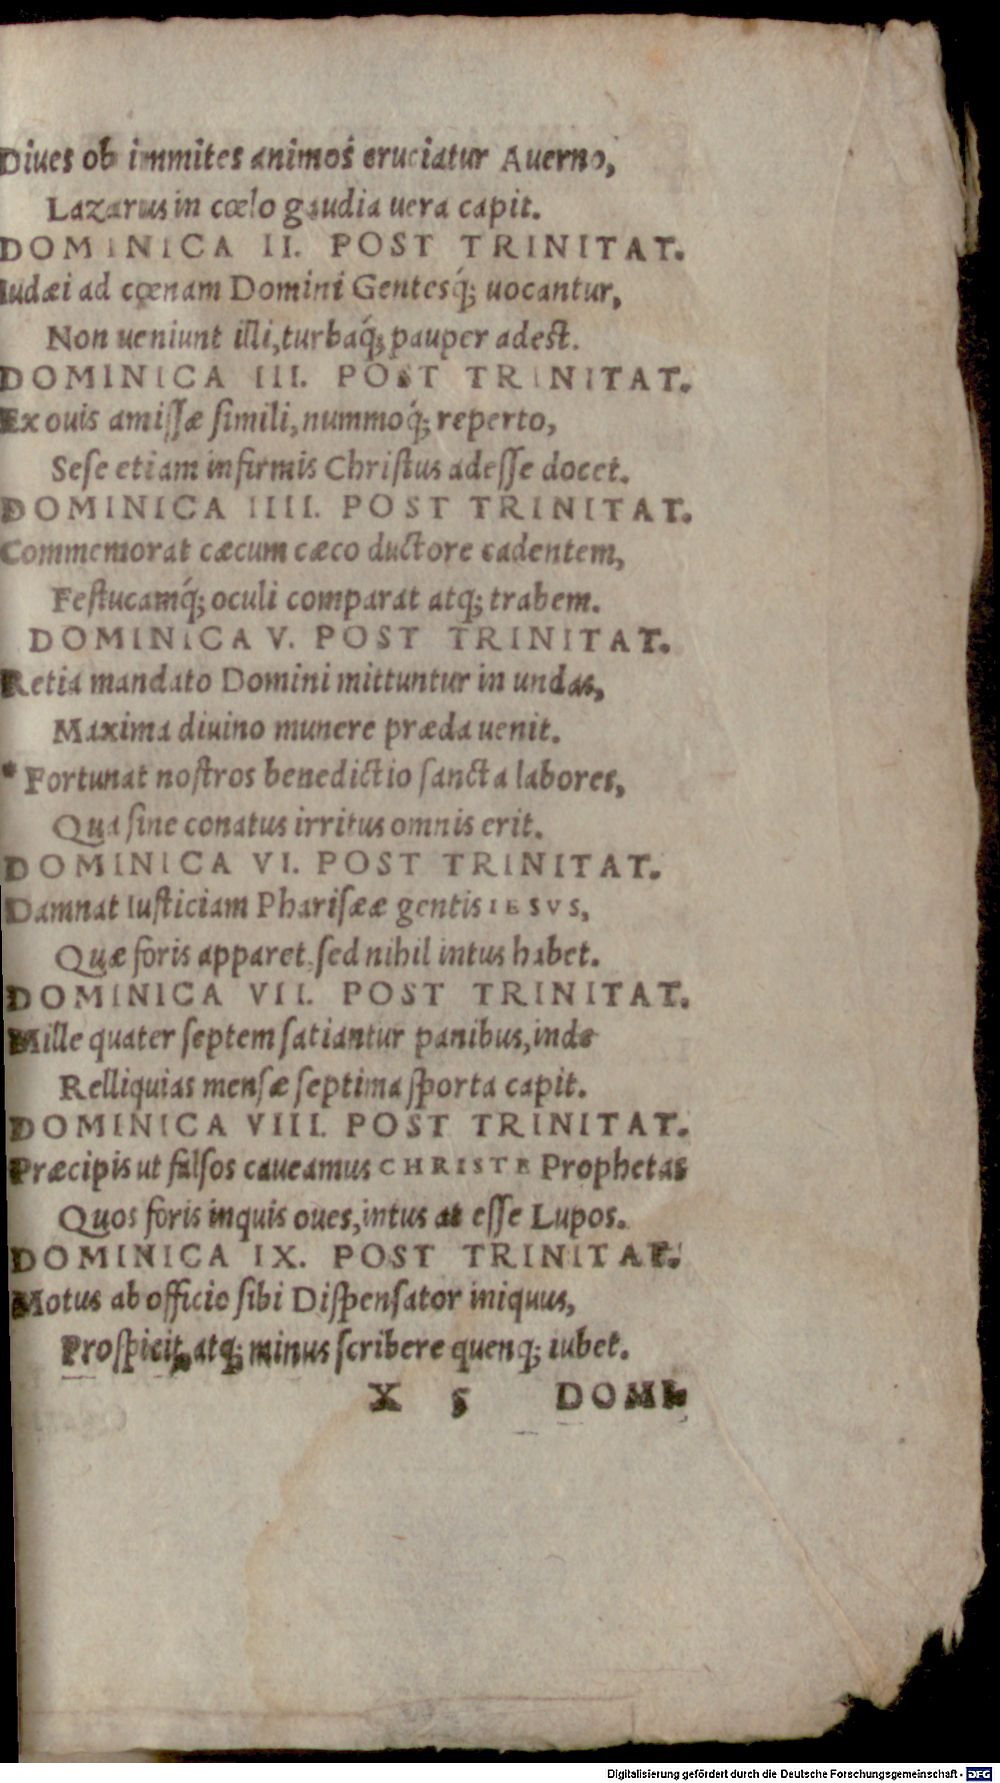 Diues ob immites animos cruciatur Auerno,
Lazarus in cœlo gaudia uera capit.
DOMINICA II. POST TRINITAT.
Iudæi ad cœnam Domini Gentesq́; uocantur,
Non ueniunt illi, turbaq́; pauper adest.
DOMINICA III. POST TRINITAT.
Ex ouis amiſſæ ſimili, nummoq́; reperto,
Seſe etiam infirmis Chriſtus adeſſe docet.
DOMINICA IIII. POST TRINITAT.
Commemorat cæcum cæco ductore cadentem,
Feſtucamq́; oculi comparat atq; trabem.
DOMINICA V. POST TRINITAT.
Retia mandato Domini mittuntur in undas,
Maxima diuino munere præda uenit.
* Fortunat noſtros benedictio ſancta labores,
Qua ſine conatus irritus omnis erit.
DOMINICA VI. POST TRINITAT.
Damnat Iuſticiam Phariſææ gentis IESVS,
Quæ foris apparet, ſed nihil intus habet.
DOMINICA VII. POST TRINITAT.
Mille quater ſeptem ſatiantur panibus, inde
Relliquias menſæ ſeptima ſporta capit.
DOMINICA VIII. POST TRINITAT.
Præcipis ut falſos caueamus CHRISTE Prophetas
Quos foris inquis oues, intus at eſſe Lupos.
DOMINICA IX. POST TRINITAT.
Motus ab officio ſibi Diſpenſator iniquus,
Proſpicit, atq; minus ſcribere quenq; iubet.
X 5 DOMI-
Digitalisierung gefördert durch die Deutsche Forschungsgemeinschaft - DFG